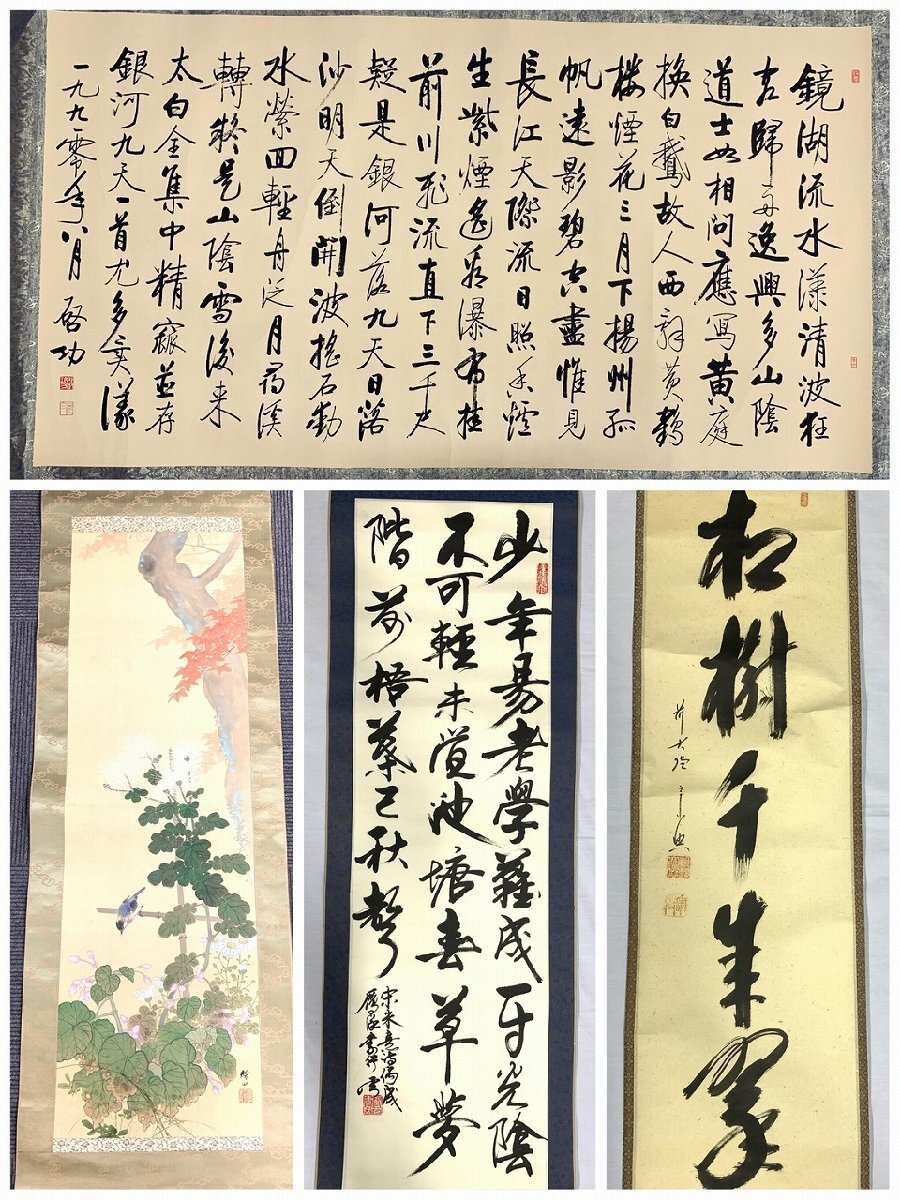 鏡湖流水漾清波狂
客歸舟逸興多山陰
道士如相問應寫黃庭
換白鵝故人西辭黃鶴
樓煙花三月下揚州孤
帆遠影碧空盡惟見
長江天際流日照香爐
生紫煙遙看瀑布挂
前川飛流直下三千尺
疑是銀河落九天日落
沙明天倒開波搖石動
水縈回輕舟泛月尋溪
轉疑是山陰雪後來
太白全集中精並存
銀河九天一首尤多
一九九零年八月 啓功
少年易老學難成一寸光陰
不可輕未覺池塘春草夢
階前梧葉已秋聲
宋朱熹詩偶成
松樹千年翠